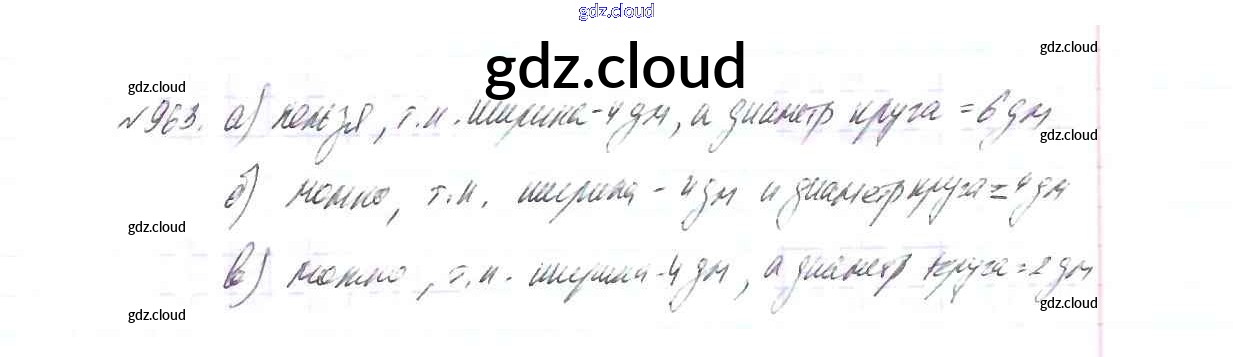 gdz.cloud
gdz.cloud
gdz.cloud
gdz.cloud
№963. а) нельзя, т.к. ширина - 4 дм, а диаметр круга = 6 дм
gdz.cloud
б) можно, т.к. ширина - 4 дм и диаметр круга = 4 дм
gdz.cloud
в) можно, т.к. ширина - 4 дм, а диаметр круга = 2 дм
gdz.cloud
gdz.cloud